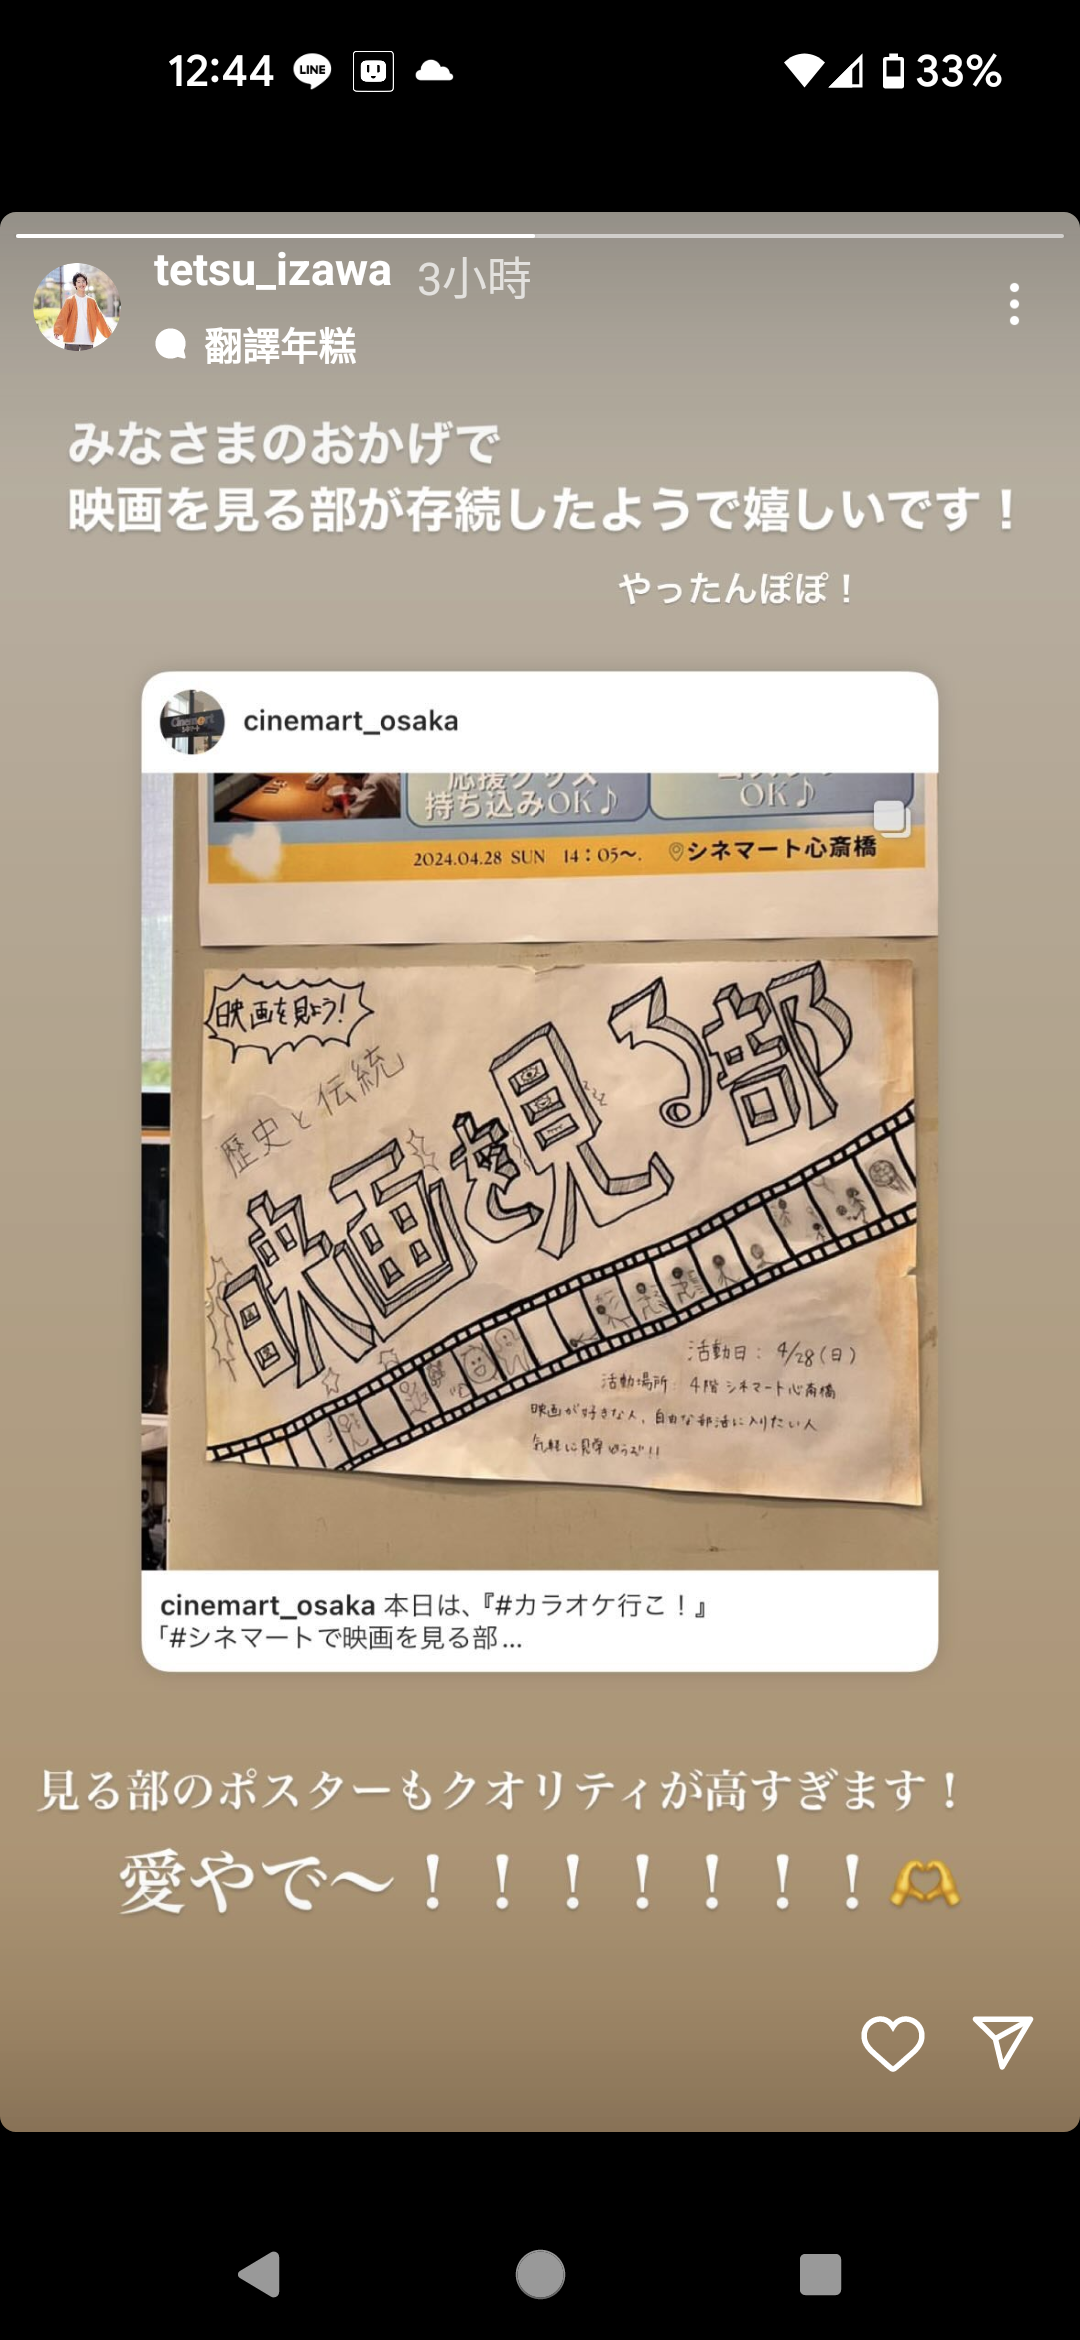 12:44
LINE
33%
tetsu_izawa 3小時
翻譯年糕
みなさまのおかげで
映画を見る部が存続したようで嬉しいです！
やったんぽぽ！
cinemart_osaka
応援グッズ
持ち込みOK♪
OK♪
2024.04.28 SUN 14：05〜. シネマート心斎橋
映画を見よう!
歴史と伝統
映画を見る部
活動日：4/28(日)
活動場所：4階 シネマート心斎橋
映画が好きな人、自由な部活に入りたい人
気軽に見学どうぞ!!
cinemart_osaka 本日は、『#カラオケ行こ！』
「#シネマートで映画を見る部...
見る部のポスターもクオリティが高すぎます！
愛やで〜！！！！！！！🫶